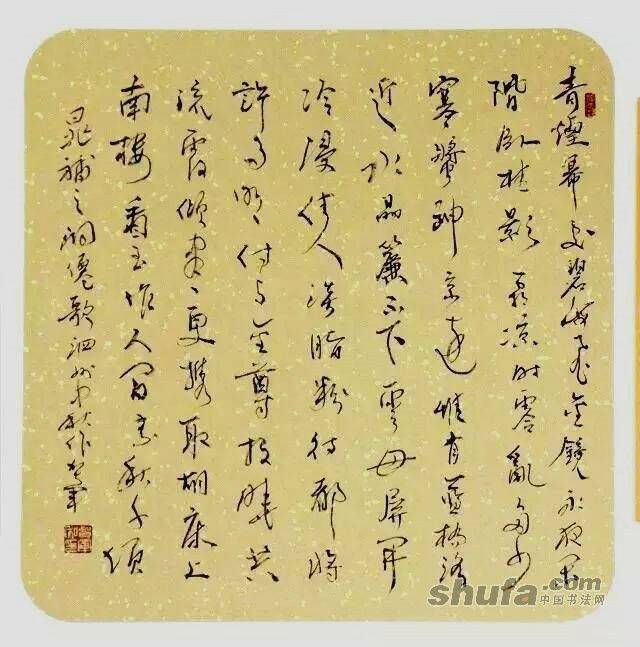 青煙幂处碧海飞金鏡永夜闲
階卧桂影露凉时零亂多少
寒螀神京遠惟有蓝桥路
近水晶簾不下雲母屏开
冷浸佳人淡脂粉待都將
許多明付与金尊投曉共
流霞倾盡更携取胡床上
南楼看玉作人间素秋千頃
晁補之洞僊歌泗州中秋作
shufa.com
中国书法网